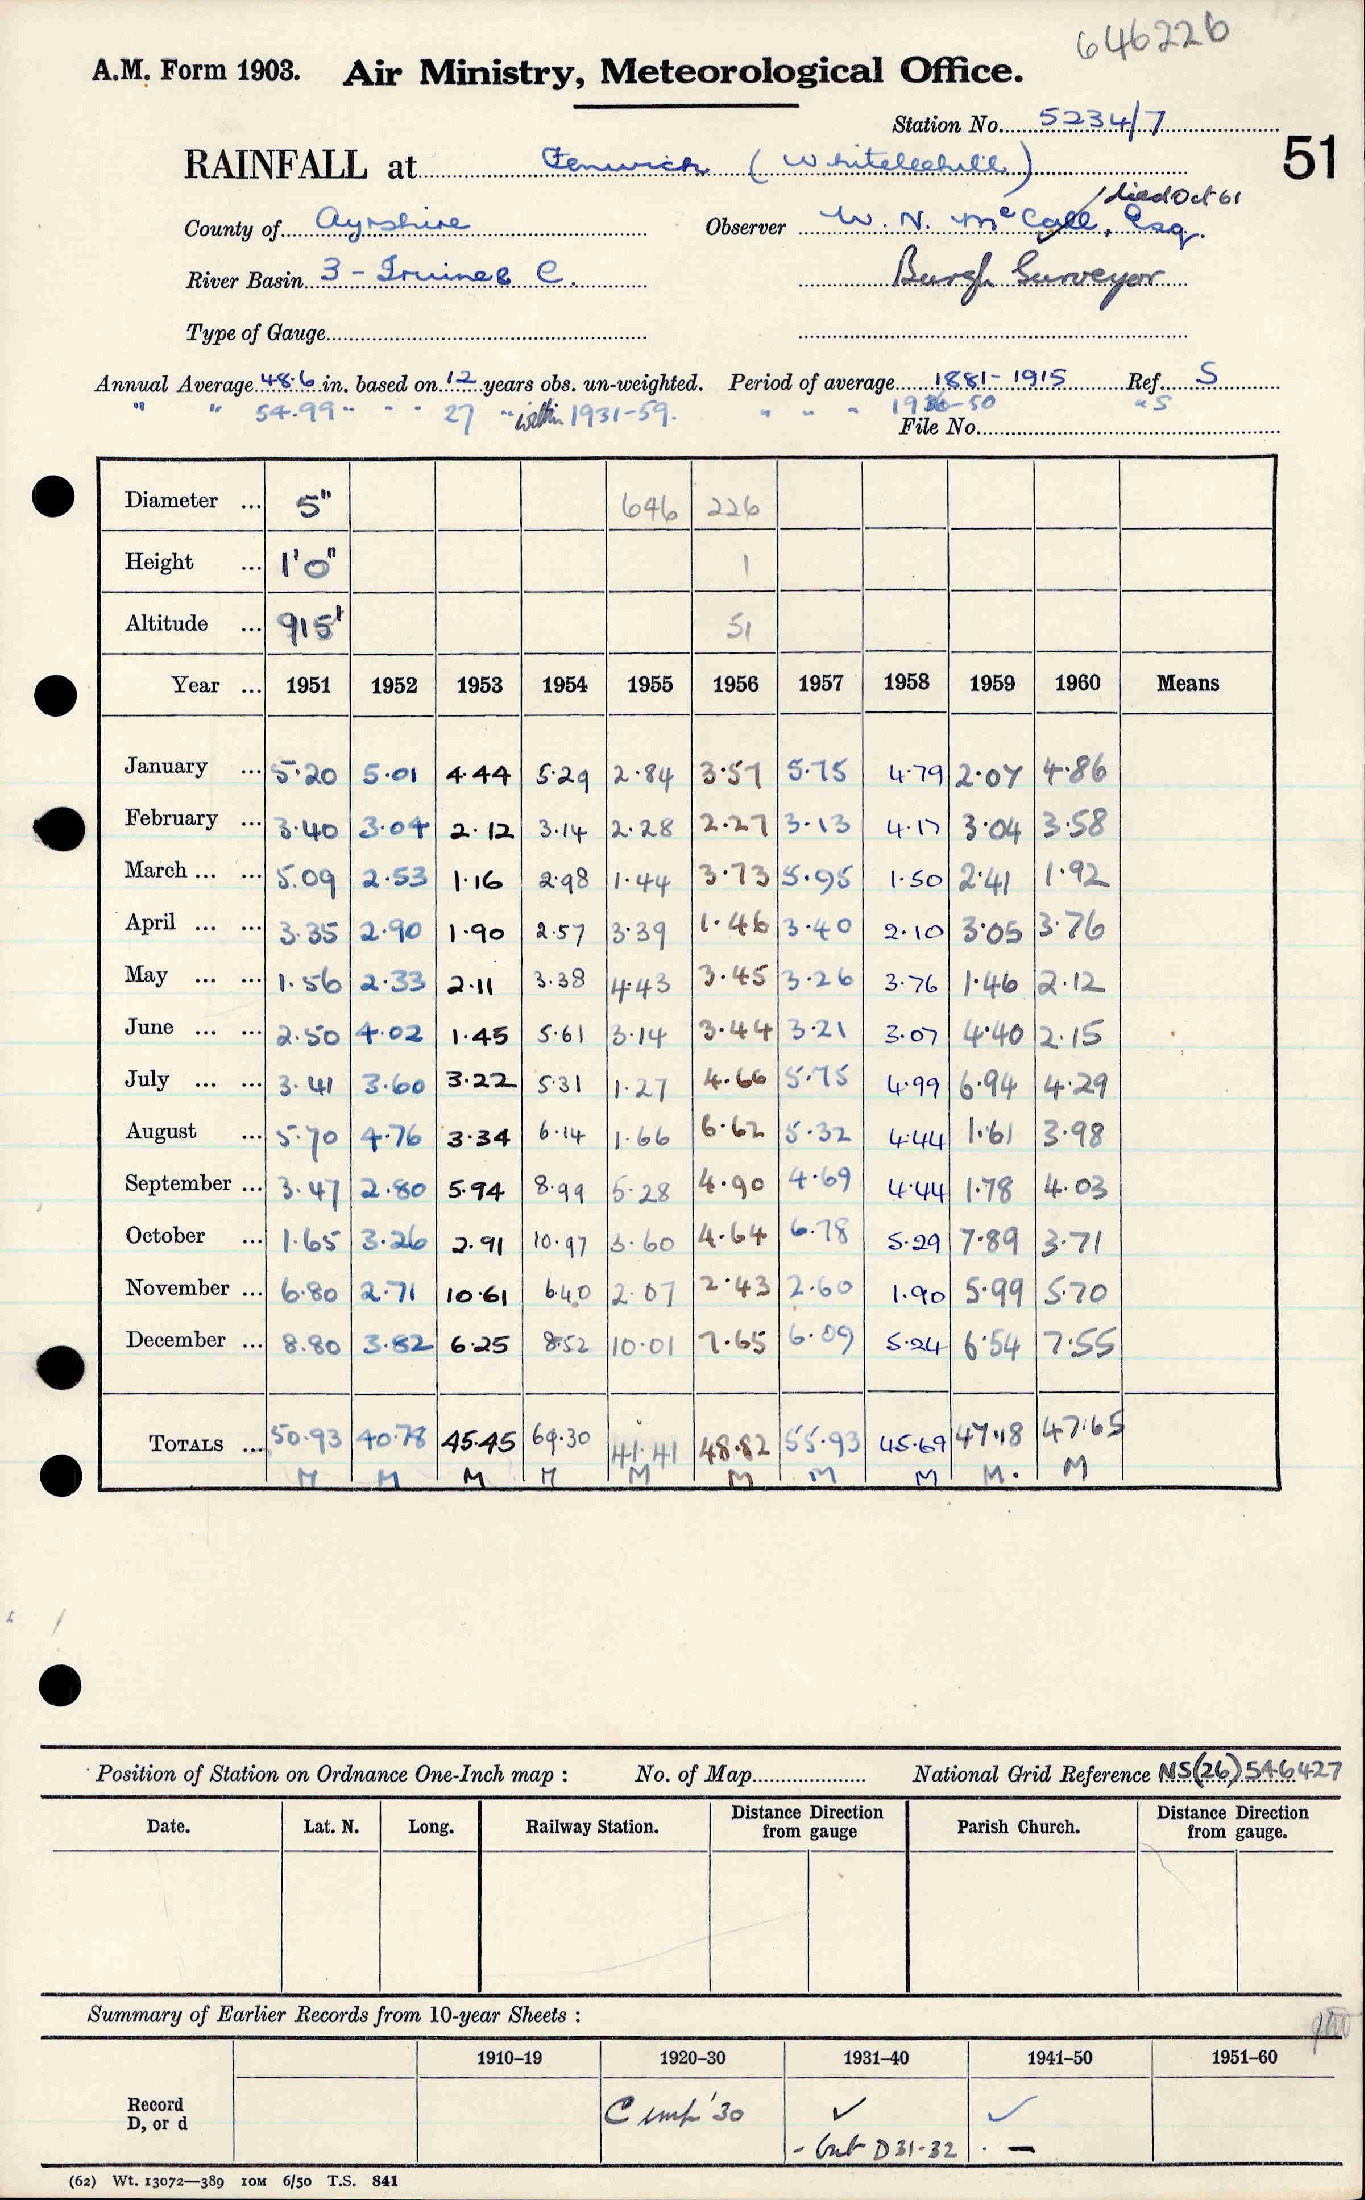 646226
A.M. Form 1903. Air Ministry, Meteorological Office.
Station No. 5234/7
51
RAINFALL at Fenwick (Whiteleehill)
died Oct 61
County of Ayrshire Observer W. N. McCall, Esq.
River Basin 3 - Irvine & C. Burgh Surveyor
Type of Gauge
Annual Average 48.6 in. based on 12 years obs. un-weighted. Period of average 1881-1915 Ref. S
" " 54.99 " - - - 27 " within 1931-59. " " " 1936-50 " S
File No.
Diameter ... 5" 646 226
Height ... 1'0" 1
Altitude ... 915' 51
Year ... 1951 1952 1953 1954 1955 1956 1957 1958 1959 1960 Means
January ... 5.20 5.01 4.44 5.29 2.84 3.57 5.75 4.79 2.07 4.86
February ... 3.40 3.04 2.12 3.14 2.28 2.27 3.13 4.17 3.04 3.58
March ... ... 5.09 2.53 1.16 2.98 1.44 3.73 5.95 1.50 2.41 1.92
April ... ... 3.35 2.90 1.90 2.57 3.39 1.46 3.40 2.10 3.05 3.76
May ... ... 1.56 2.33 2.11 3.38 4.43 3.45 3.26 3.76 1.46 2.12
June ... ... 2.50 4.02 1.45 5.61 3.14 3.44 3.21 3.07 4.40 2.15
July ... ... 3.41 3.60 3.22 5.31 1.27 4.66 5.75 4.99 6.94 4.29
August ... 5.70 4.76 3.34 6.14 1.66 6.62 5.32 4.44 1.61 3.98
September ... 3.47 2.80 5.94 8.99 5.28 4.90 4.69 4.44 1.78 4.03
October ... 1.65 3.26 2.91 10.97 3.60 4.64 6.78 5.29 7.89 3.71
November ... 6.80 2.71 10.61 6.40 2.07 2.43 2.60 1.90 5.99 5.70
December ... 8.80 3.82 6.25 8.52 10.01 7.65 6.09 5.24 6.54 7.55
TOTALS ... 50.93 40.78 45.45 69.30 41.41 48.82 55.93 45.69 47.18 47.65
M M M M M M M M M. M
Position of Station on Ordnance One-Inch map : No. of Map National Grid Reference NS(26)546427
Date. Lat. N. Long. Railway Station. Distance Direction from gauge Parish Church. Distance Direction from gauge.
Summary of Earlier Records from 10-year Sheets :
1910–19 1920–30 1931–40 1941–50 1951–60
Record D, or d C imp '30 ✓ ✓
- but D 31-32 . —
(62) Wt. 13072—389 10M 6/50 T.S. 841